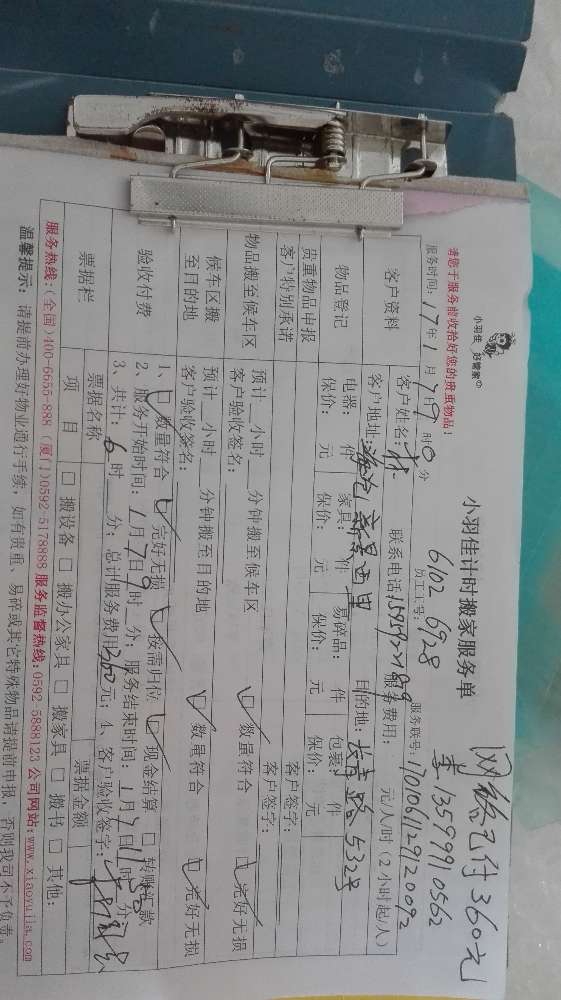 小羽佳 好管家
小羽佳计时搬家服务单
网络已付360元
13599910562
请您于服务前收拾好您的贵重物品！
6102 6928
员工工号：
服务联号：170106129120092
服务时间：17年1月7日9时0分
客户资料
客户姓名：林
联系电话
服务费用： 元/人/时（2小时起/人）
客户地址：
新景西里
目的地：
532号
物品登记
电器： 件 家具： 件 易碎品： 件 包裹： 件
保价： 元 保价： 元 保价： 元 保价： 元
贵重物品申报
客户签字：
客户特别承诺
客户签字：
物品搬至候车区
预计__小时__分钟搬至候车区
客户验收签名：
数量符合 完好无损
候车区搬至目的地
预计__小时__分钟搬至目的地
客户验收签名：
数量符合 完好无损
验收付费
1、数量符合 完好无损 按需归位 现金结算 □ 转账汇款
2、服务开始时间：1月7日9时 分；服务结束时间：1月7日 时 分
3、共计：6时__分；总计服务费用360元；4、客户验收签字：
票据栏
票据名称
票据金额
项 目
□ 搬设备 □ 搬办公家具 □ 搬家具 □ 搬书 □ 其他：
服务热线：(全国)400-6655-888 (厦门)0592-5178888 服务监督热线：0592-5888123 公司网站：www.xiaoyujia.com
温馨提示：请提前办理好物业通行手续，如有贵重、易碎或其它特殊物品请提前申报，否则我司不予负责。